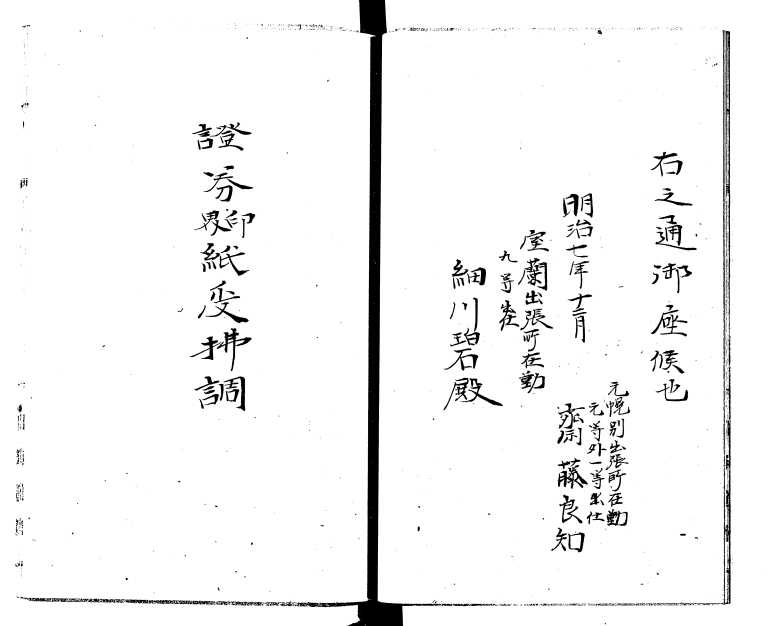 右之通御座候也
明治七年十二月
元幌別出張所在勤
元等外一等出仕
齋藤良知
室蘭出張所在勤
九等出仕
細川碧殿
證券印紙界紙受拂調